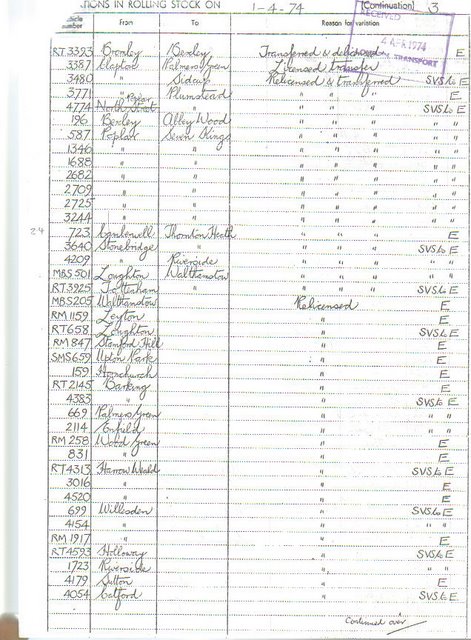 TIONS IN ROLLING STOCK ON 1-4-74 (Continuation) 3
RECEIVED
4 APR 1974
TRANSPORT
number From To Reason for variation
RT 3393 Bromley Bexley Transferred & delicensed E
3387 Clapton Palmers Green Licensed transfer
3480 " Sidcup Relicensed & transferred SVS to E
3771 " Plumstead " " " E
4774 North Street Poplar " " " SVS to E
196 Bexley Abbey Wood " " " " "
587 Poplar Seven Kings " " " " "
1346 " " " " " " "
1688 " " " " " " "
2682 " " " " " " "
2709 " " " " " " "
2725 " " " " " " "
3244 " " " " " " "
24 723 Camberwell Thornton Heath " " " E
3640 Stonebridge " " " " SVS to E
4209 " Riverside " " " " "
MBS 501 Loughton Walthamstow " " " " "
RT 3925 Tottenham " " " " SVS to E
MBS 205 Walthamstow Relicensed E
RM 1159 Leyton " E
RT 658 Loughton " SVS to E
RM 847 Stamford Hill " E
SMS 659 Upton Park " E
159 Hornchurch " E
RT 2145 Barking " E
4383 " " SVS to E
669 Palmers Green " " "
2114 Enfield " " "
RM 258 Wood Green " E
831 " " E
RT 4313 Harrow Weald " SVS to E
3016 " " E
4520 " " E
699 Willesden " SVS to E
4154 " " " "
RM 1917 " " E
RT 4593 Holloway " SVS to E
1723 Riverside " E
4179 Sutton " E
4054 Catford " SVS to E
Continued over